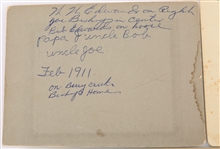 W. W. Edwards on Right
Joe Bishop in Center
Bob Edwards on horse
Papa & uncle Bob
uncle Joe
Feb 1911
on
Bishop Home